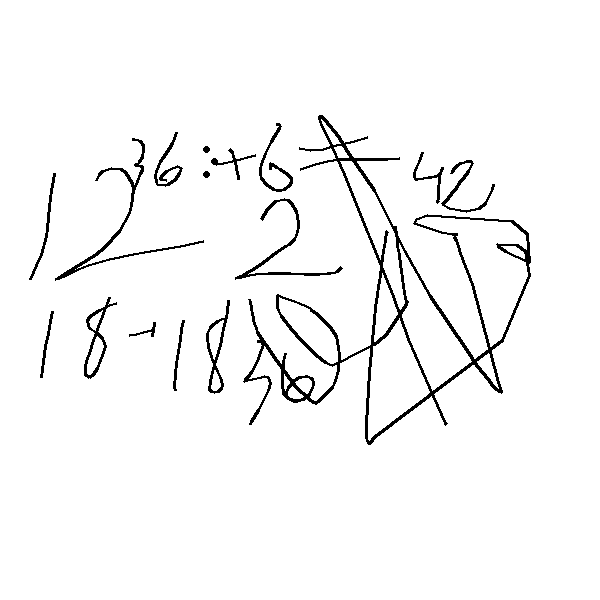 36 :+6 = 42
12 2
18+18 36